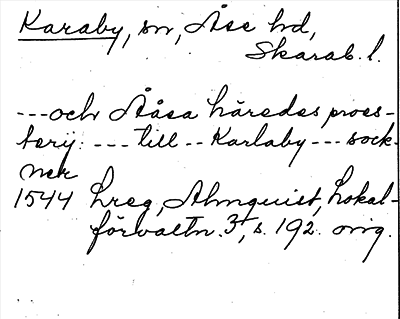 Karaby, sn, Åse hd,
Skarab. l.
---och Ååsa häredes pros-
terij: --- till -- Karlaby --- sock-
ner
1544 Lreg, Almquist, Lokal-
förvaltn. 3, s. 192. orig.